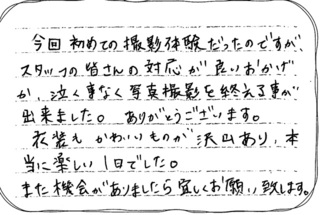 今回 初めての撮影体験だったのですが、
スタッフの皆さんの対応が良いおかげ
か、泣く事なく写真撮影を終える事が
出来ました。 ありがとうございます。
衣装も かわいいものが 沢山あり、本
当に楽しい1日でした。
また機会がありましたら宜しくお願い致します。